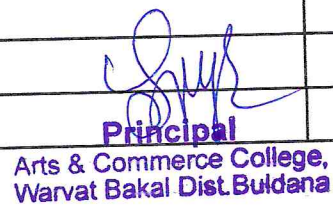 Principal
Arts & Commerce College,
Warvat Bakal Dist.Buldana